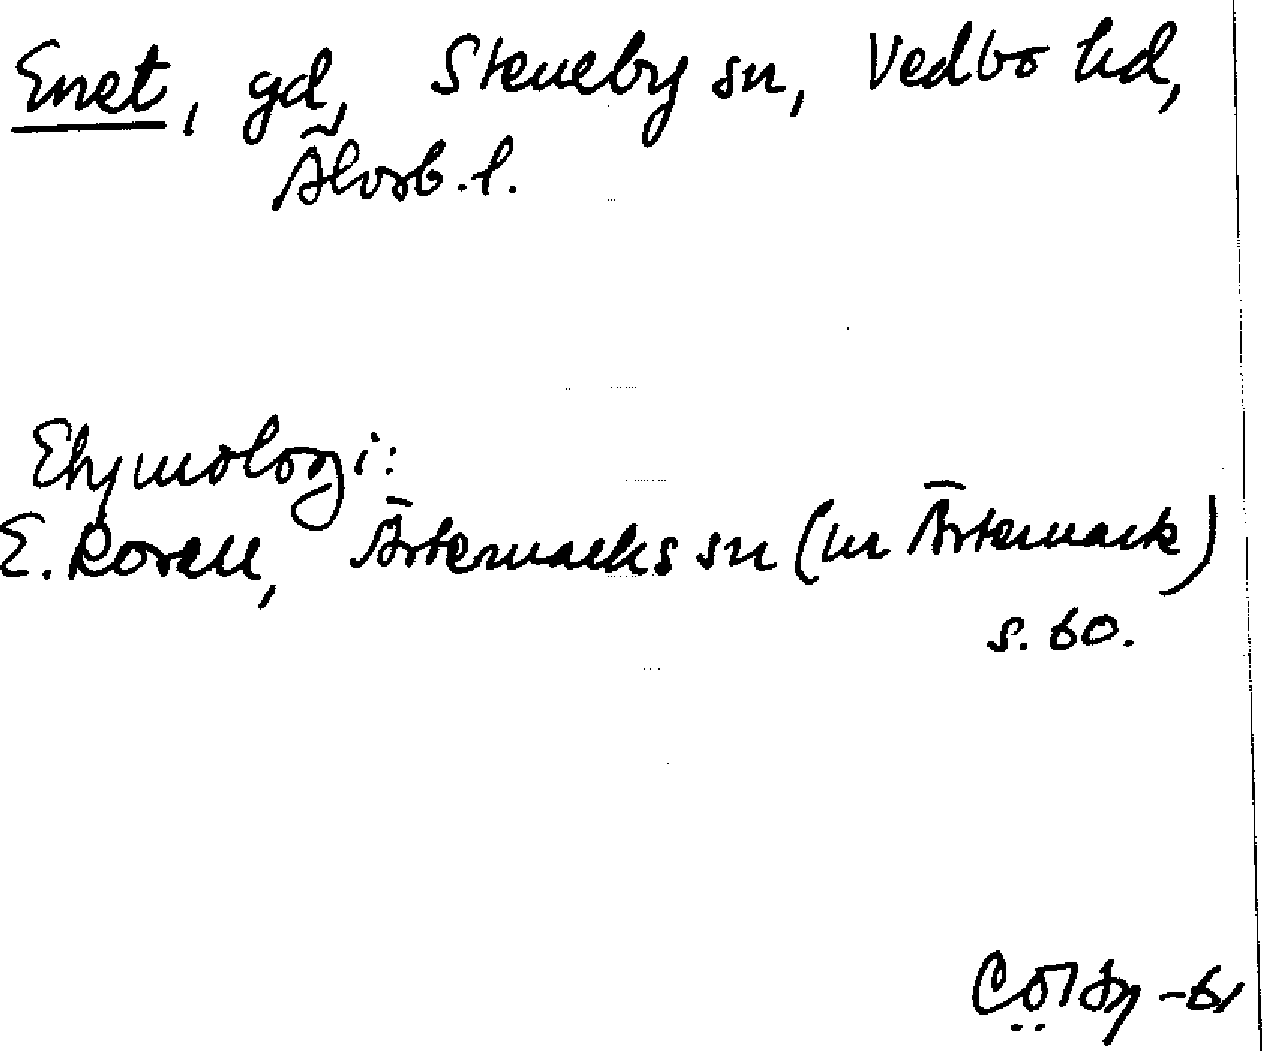 Enet, gd, Steneby sn, Vedbo hd,
Älvsb. l.
Etymologi:
E. Rosell, Ärtemarks sn (ur Ärtemark)
s. 60.